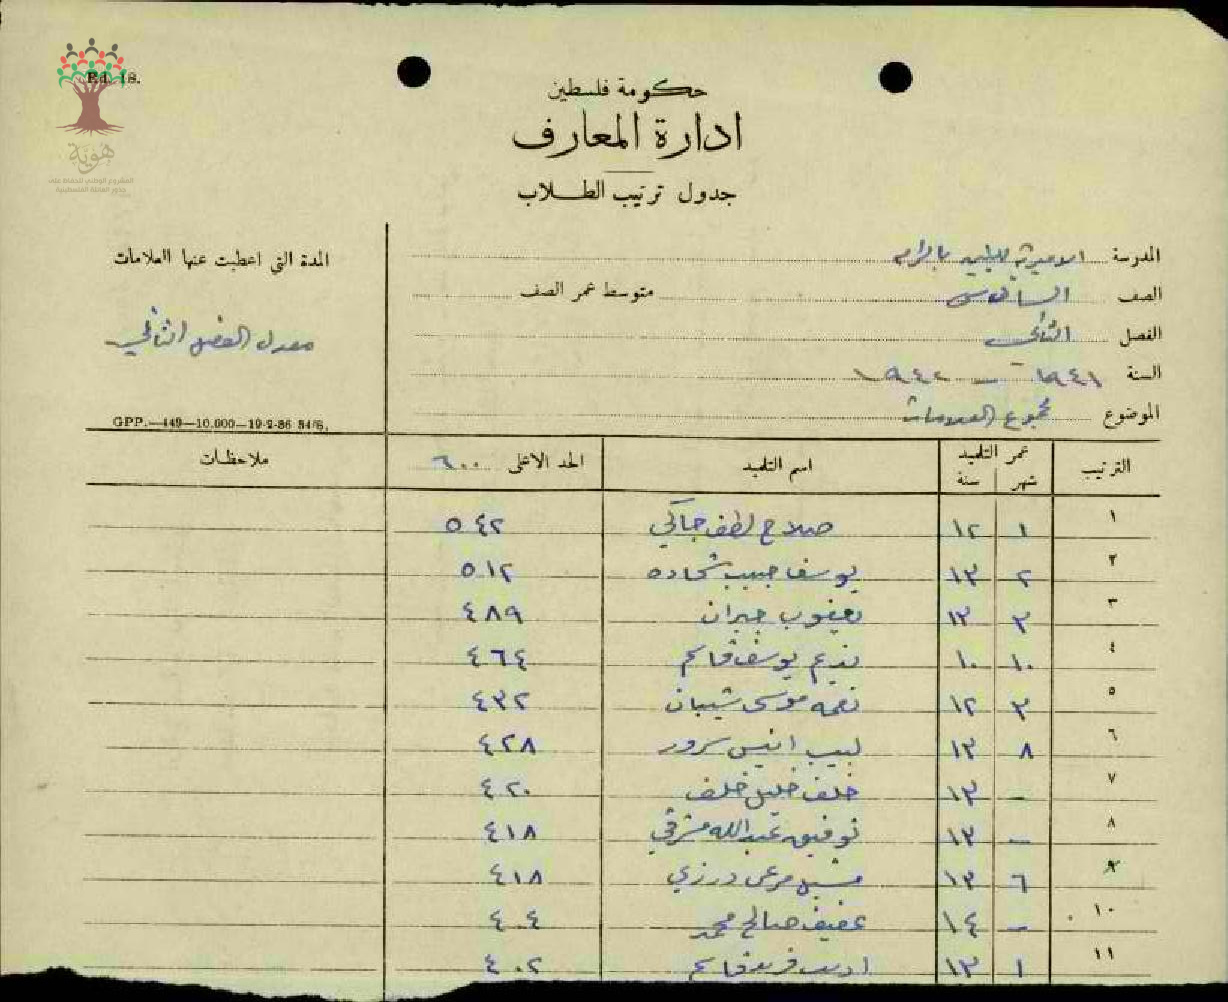 Ed. 18.
هوية
المشروع الوطني للحفاظ على
جذور العائلة الفلسطينية
حكومة فلسطين
ادارة المعارف
جدول ترتيب الطلاب
المدرسة الاميرية للبنين بالرامه
الصف السادس متوسط عمر الصف
الفصل الثاني
السنة ١٩٤١ – ١٩٤٢
الموضوع مجموع العلامات
المدة التي اعطيت عنها العلامات
معدل الفصل الثاني
GPP.—449—10.000—19-2-36 34/6.
الترتيب عمر التلميذ شهر سنة اسم التلميذ الحد الاعلى ٦٠٠ ملاحظات
١ ١ ١٢ صلاح لطف جاكي ٥٤٢
٢ ٢ ١٣ يوسف حبيب شحاده ٥١٢
٣ ٣ ١٣ يعقوب جبران ٤٨٩
٤ ١٠ ١٠ نديم يوسف قاسم ٤٦٤
٥ ٣ ١٢ نعمه موسى شيبان ٤٣٢
٦ ٨ ١٣ لبيب انيس سرور ٤٢٨
٧ – ١٣ خلف خليل خلف ٤٢٠
٨ – ١٣ توفيق عبدالله مزقي ٤١٨
٦ ١٣ مرعي درزي ٤١٨
١٠ – ١٤ عفيف صالح محمد ٤٠٤
١١ ١ ١٣ اديب فريد قاسم ٤٠٢